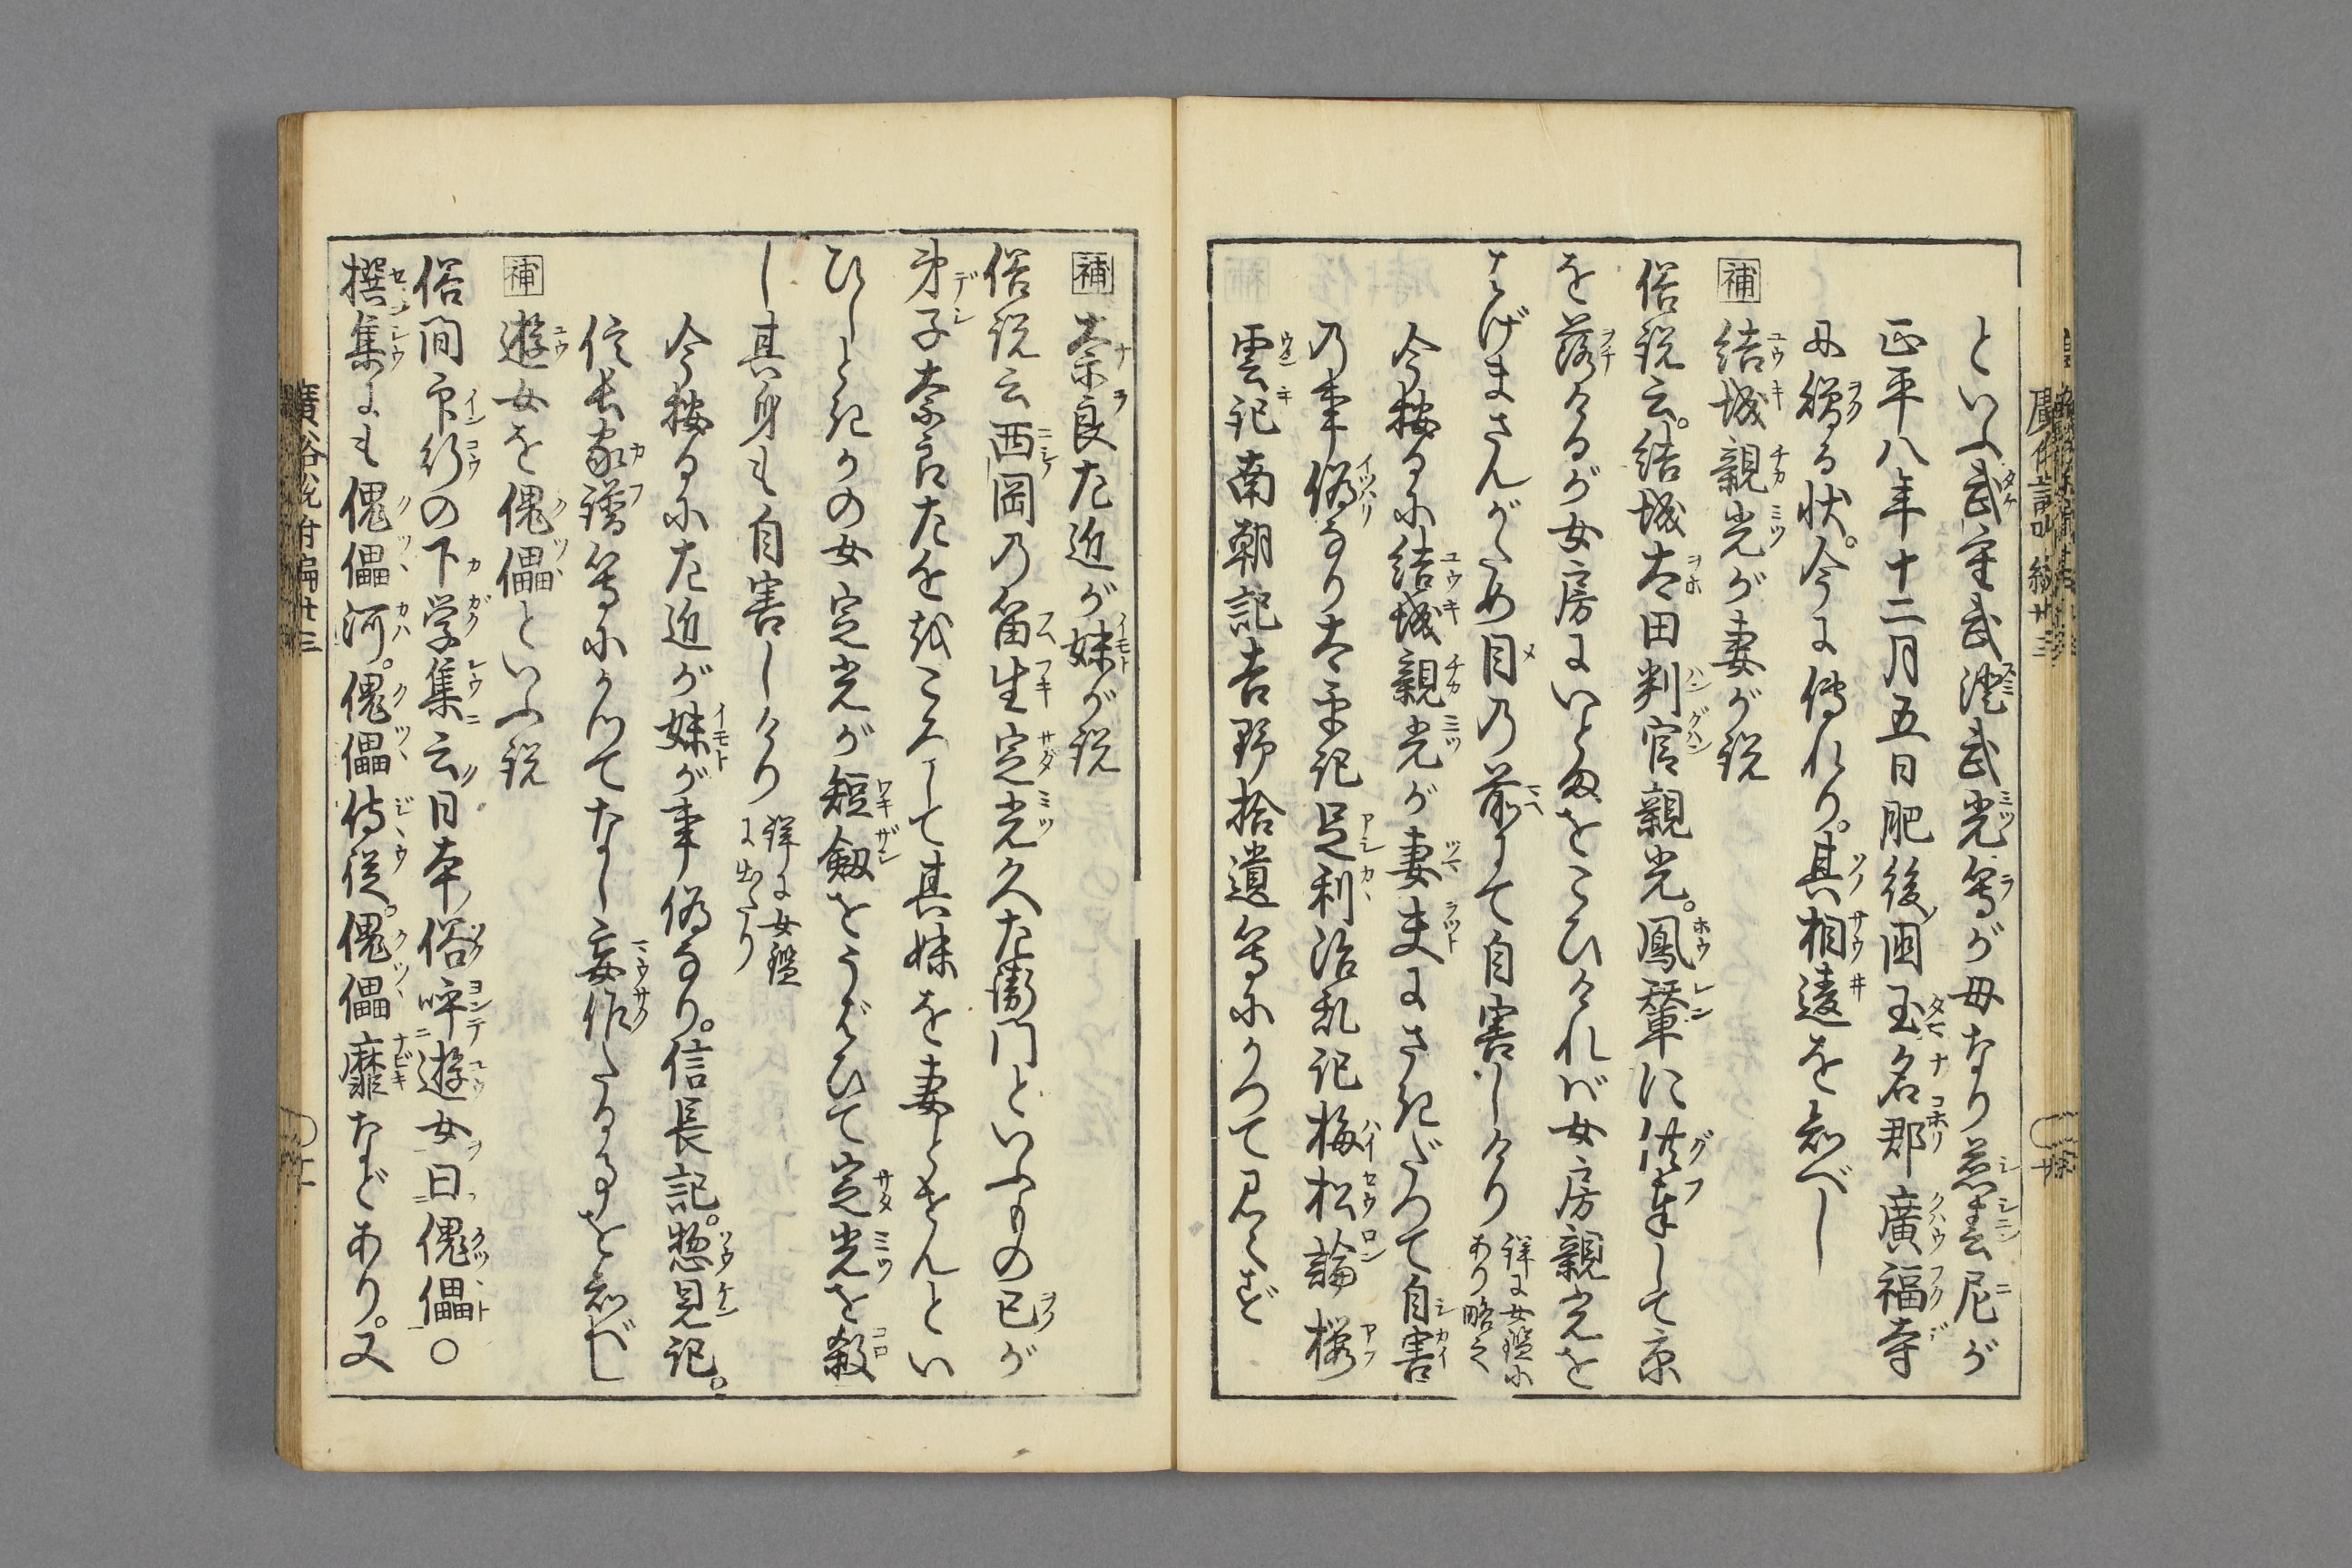 といふ武重武澄武光等が母なり慈春尼が
正平八年十二月五日肥後国玉名郡廣福寺
に贈る状。今に傳れり。其相違を知べし
補 結城親光が妻が説
俗説云。結城太田判官親光。鳳輦に供奉して京
を落けるが女房にいとまをこひければ女房親光を
はげまさんがため目の前にて自害しけり 詳に女鑑に
あり略之
今按るに結城親光が妻夫にさきだつて自害
の事偽なり太平記足利治乱記梅松論桜
雲記南朝記吉野拾遺等にかつて見えず
補 奈良左近が妹が説
俗説云西岡の笛生定光久左衛門といふもの己が
弟子奈良左近をころして其妹を妻とせんとい
ひしときかの女定光が短剱をうばひて定光を殺
し其身も自害しけり 詳に女鑑
に出たり
今按るに左近が妹が事偽なり。信長記。惣見記。
信長家譜等にかつてなし妄作たる事を知べし
補 遊女を傀儡といふ説
俗間印行の下学集云日本俗呼遊女曰傀儡〇
撰集にも傀儡河。傀儡侍従。傀儡靡などあり。又
廣俗説附編廿三